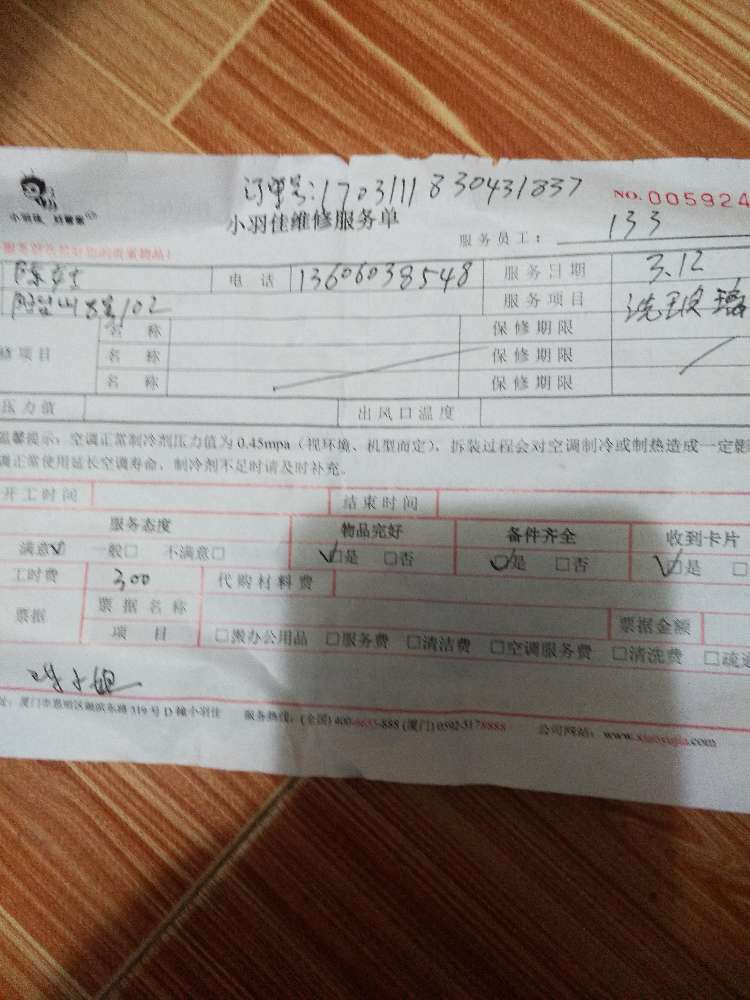 订单号:170311183043​1837
小羽佳 好管家
小羽佳维修服务单
NO. 005924
服务员工： 133
电 话 13606038548 服务日期 3.12
102 服务项目 洗玻璃
名 称 保修期限
修项目 名 称 保修期限
名 称 保修期限
压力值 出风口温度
温馨提示：空调正常制冷剂压力值为 0.45mpa（视环境、机型而定），拆装过程会对空调制冷或制热造成一定影
调正常使用延长空调寿命，制冷剂不足时请及时补充．
开工时间 结束时间
服务态度 物品完好 备件齐全 收到卡片
满意☑ 一般□ 不满意□ ☑是 □否 ☑是 □否 ☑是 □
工时费 300 代购材料费
票据 票据名称 票据金额
项 目 □激办公用品 □服务费 □清洁费 □空调服务费 □清洗费 □疏
319 号 D 幢小羽佳 服务热线：(全国) 400-9653-885 (厦门) 0592-5178888 公司网站：www.xiaoyujia.com